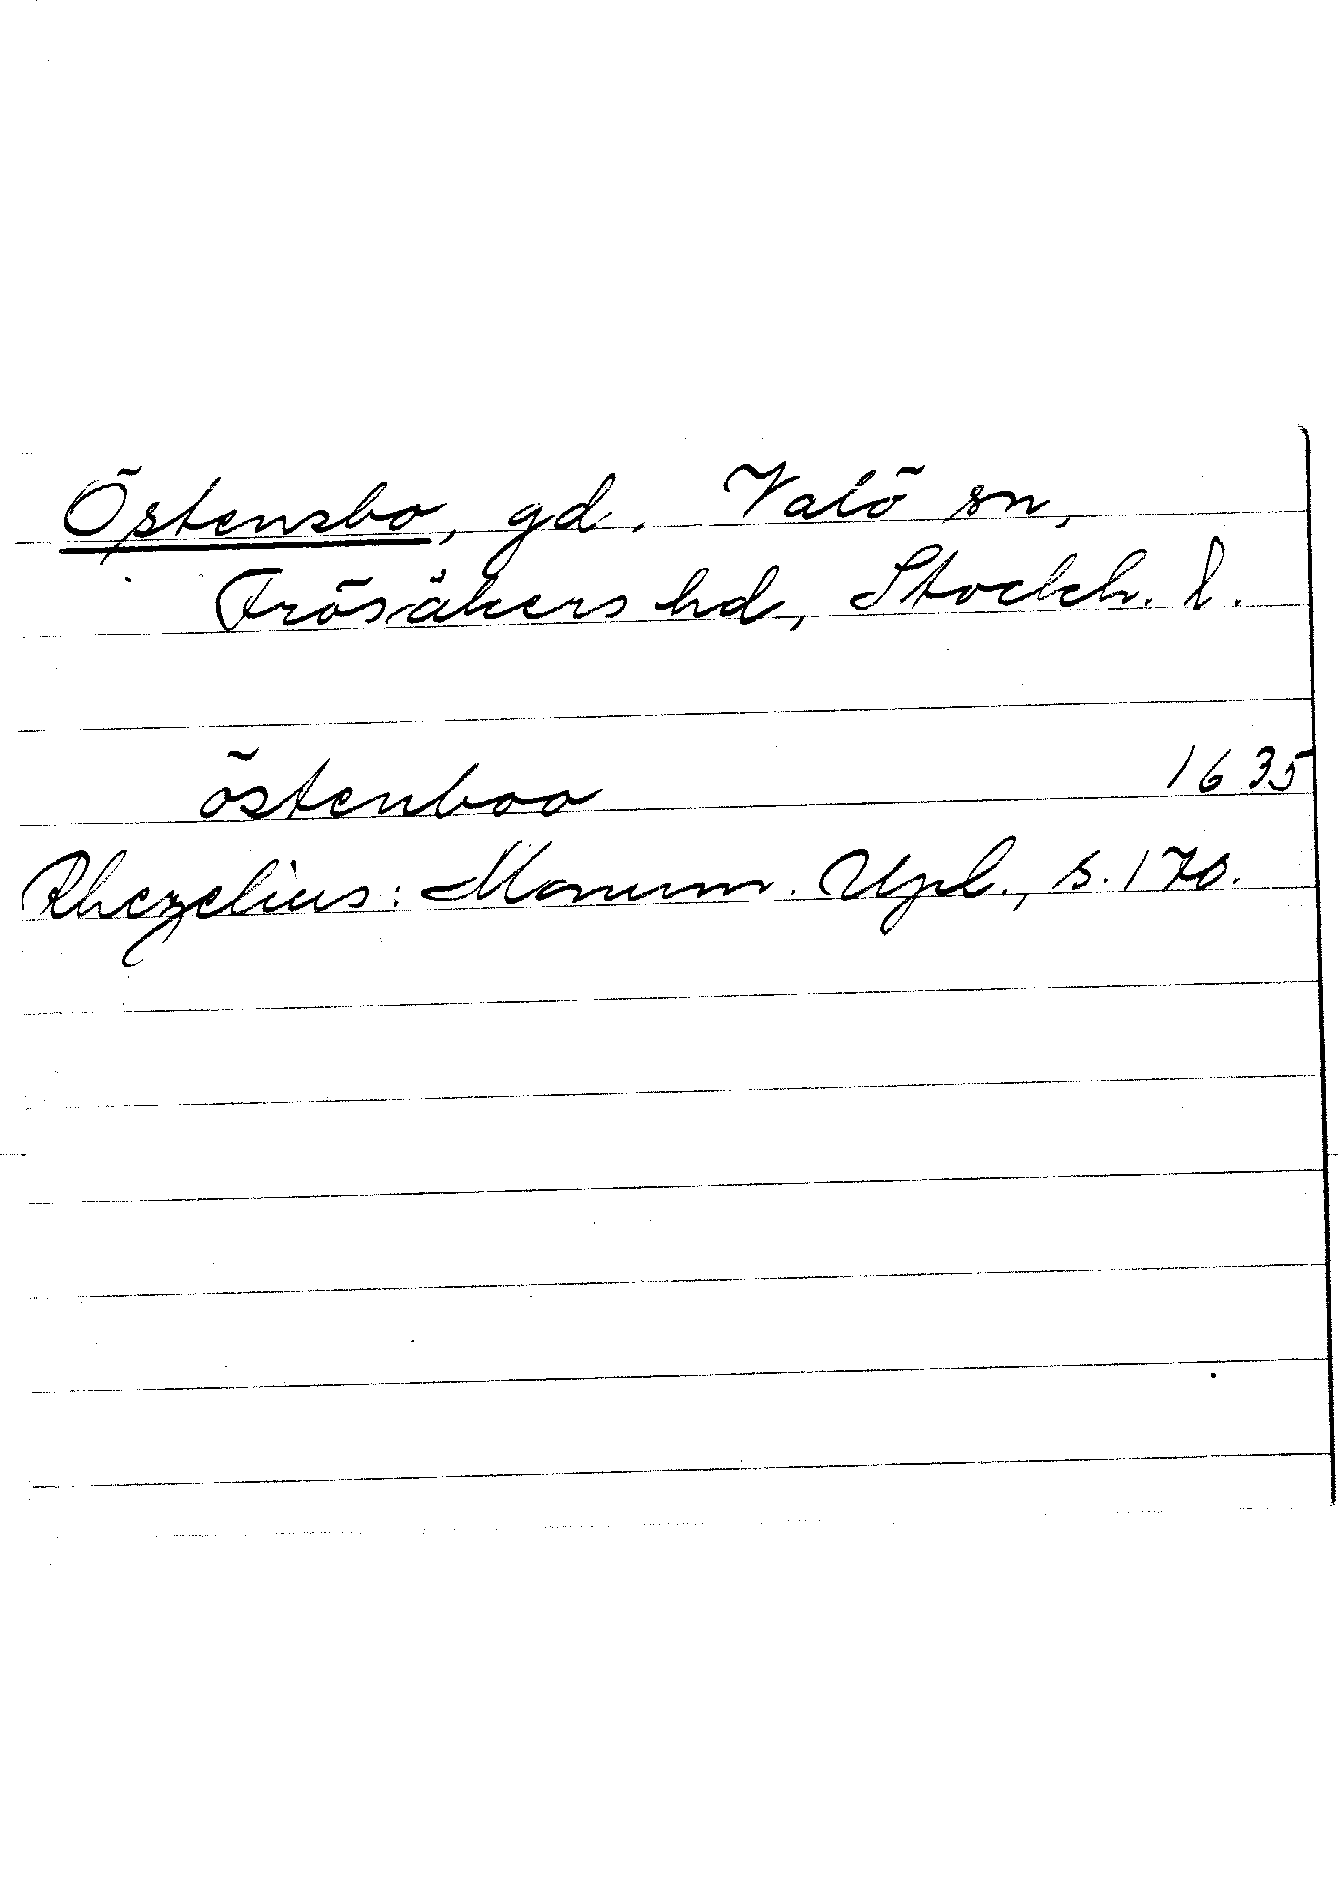 Östensbo, gd. Valö sn,
Frösåkers hd, Stockh. l.
östenboo 1635
Rhezelius: Monum. Upl., s. 170.